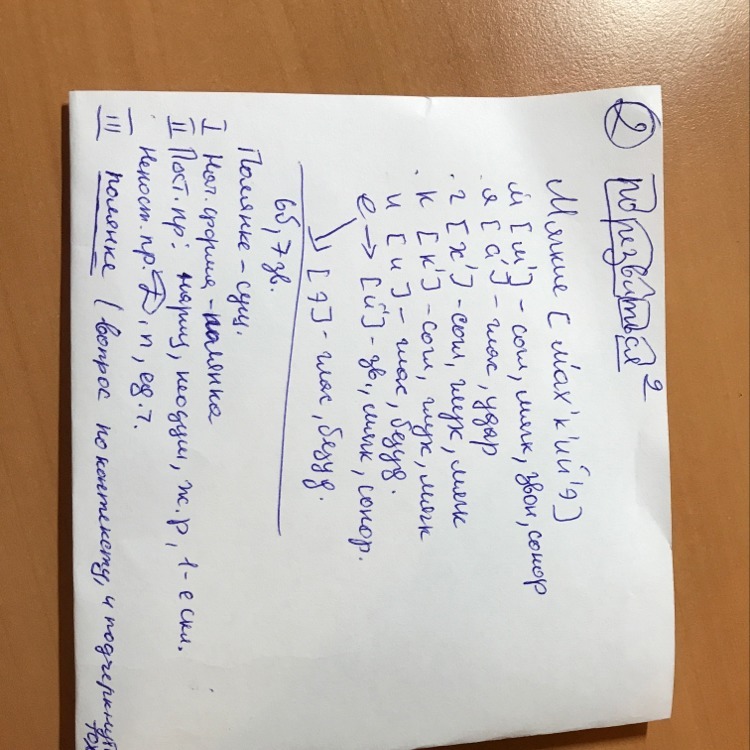 ② порезвиться ²
Мягкие [м'ах'к'ий'э]
м [м'] - согл, мягк, звон, сонор
я [а'] - глас, удар
г [х'] - согл, глух, мягк
к [к'] - согл, глух, мягк
и [и] - глас, безуд.
е → [й'] - зв, мягк, сонор.
↘ [э] - глас, безуд.
6б, 7 зв.
Полянке - сущ.
I Нач. форма - полянка
II Пост. пр: нариц, неодуш, ж.р, 1-е скл.
Непост. пр. Д.п, ед.ч.
III полянке (вопрос по контексту, и подчеркнуть